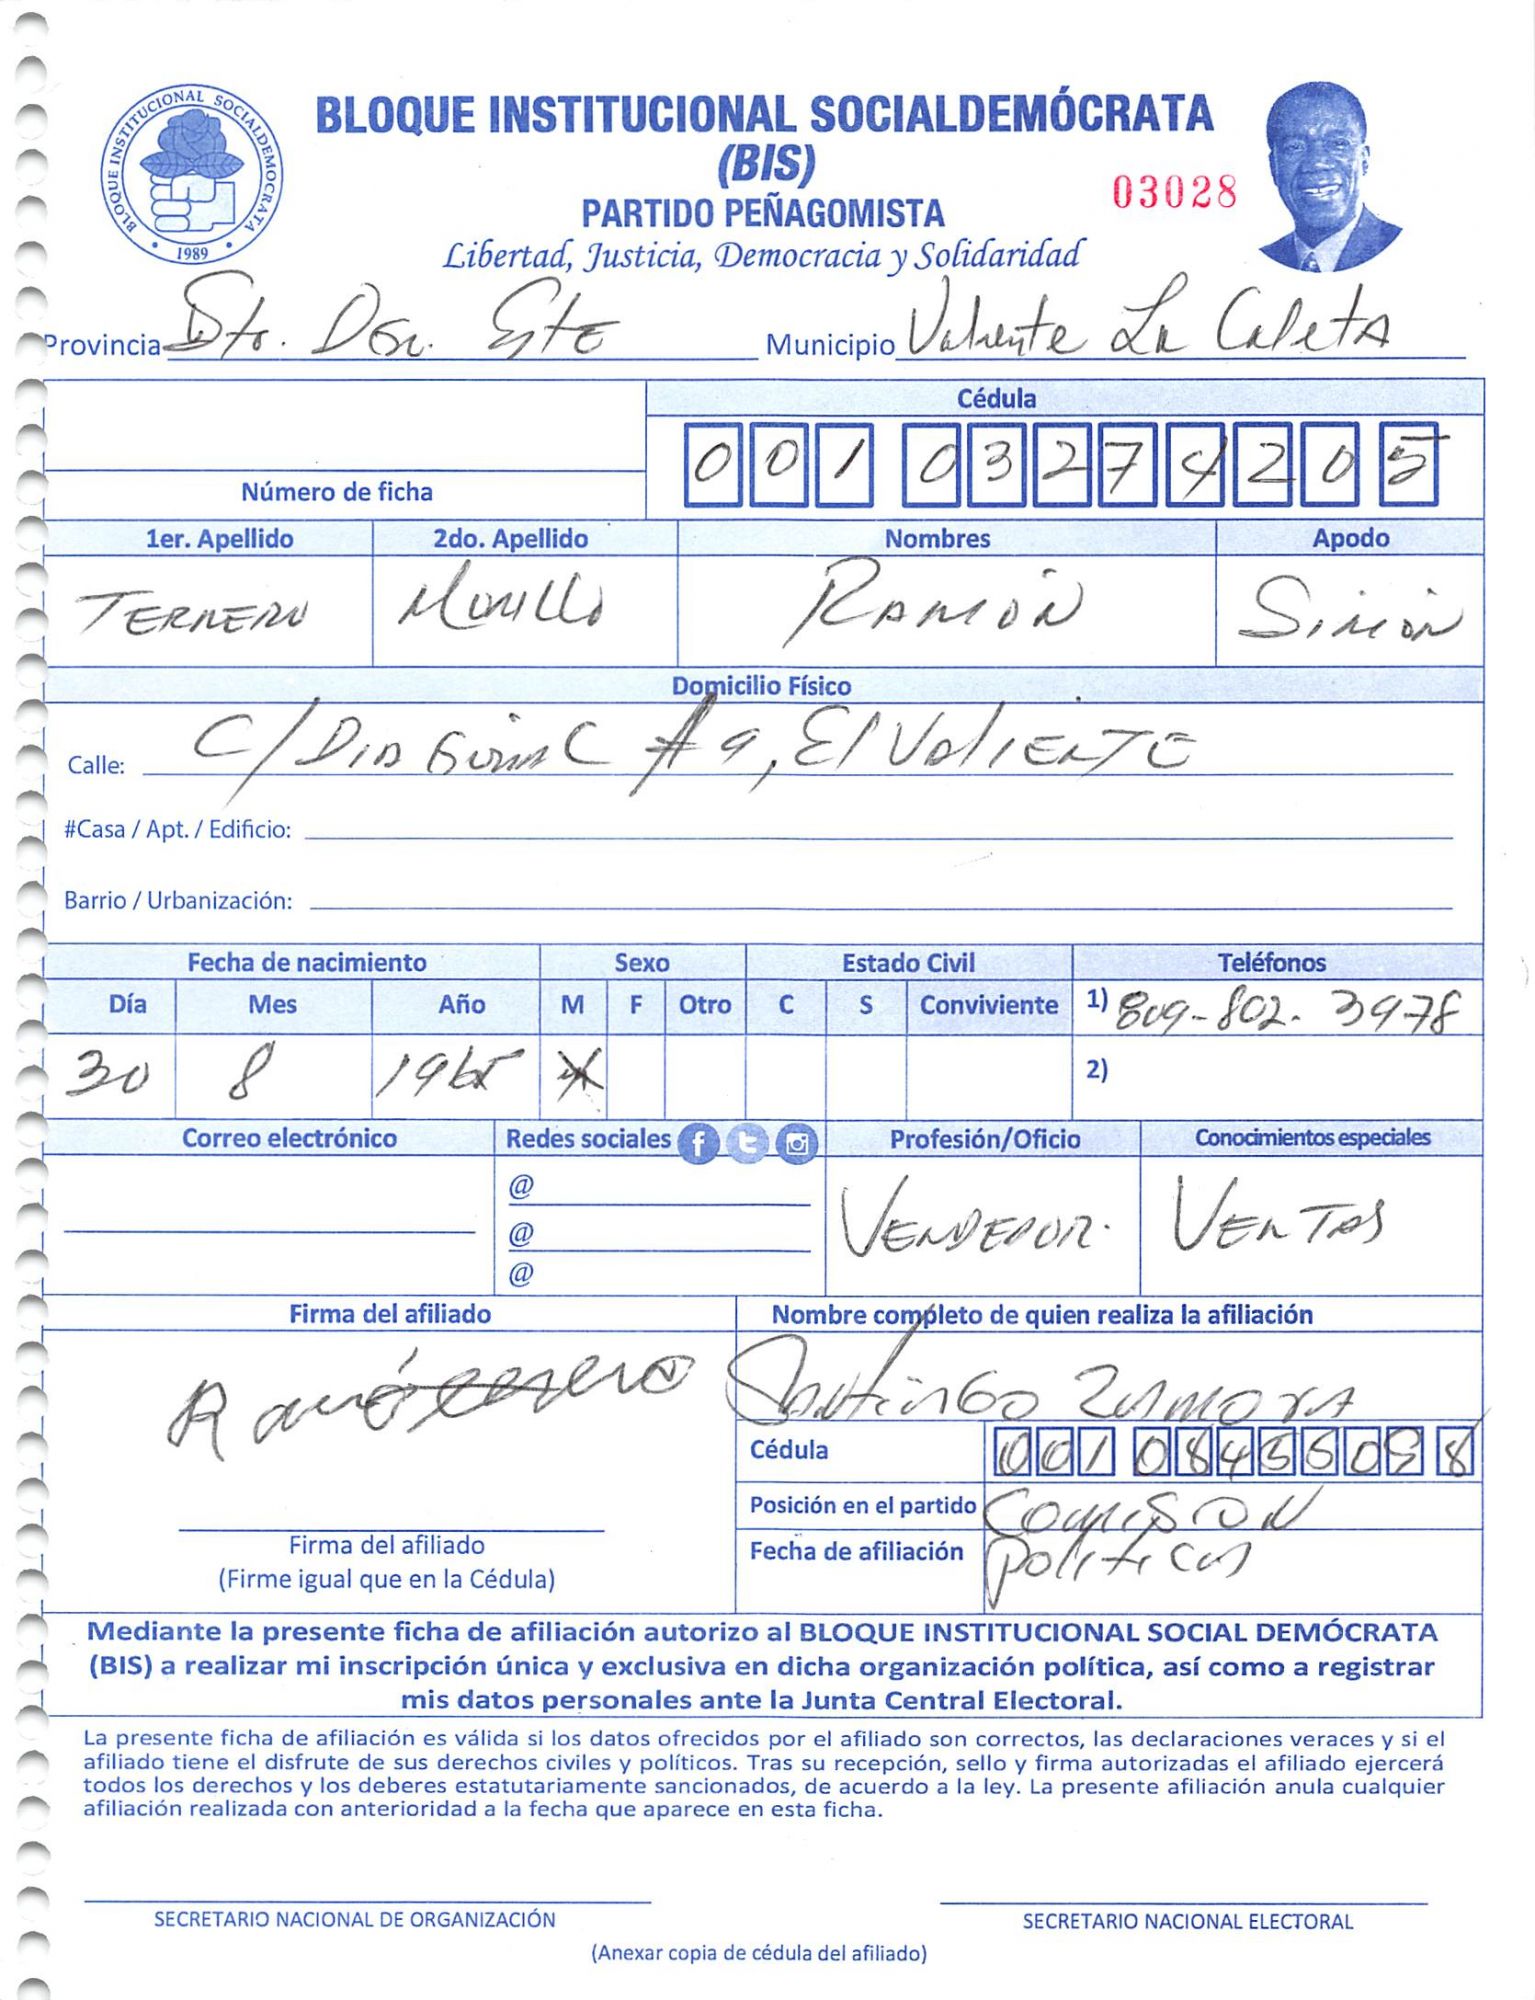 BLOQUE INSTITUCIONAL SOCIALDEMOCRATA
• 1989 •
BLOQUE INSTITUCIONAL SOCIALDEMÓCRATA
(BIS)
03028
PARTIDO PEÑAGOMISTA
Libertad, Justicia, Democracia y Solidaridad
Provincia Sto. Dgo. Este Municipio Valiente La Caleta
Cédula
0 0 1 0 3 2 7 4 2 0 5
Número de ficha
1er. Apellido 2do. Apellido Nombres Apodo
TERRERO Morillo RAMÓN Simón
Domicilio Físico
Calle: C/ #9, El VALIENTE
#Casa / Apt. / Edificio:
Barrio / Urbanización:
Fecha de nacimiento Sexo Estado Civil Teléfonos
Día Mes Año M F Otro C S Conviviente 1) 809-802-3978
30 8 1965 X 2)
Correo electrónico Redes sociales Profesión/Oficio Conocimientos especiales
@
@ VENDEDOR. VENTAS
@
Firma del afiliado Nombre completo de quien realiza la afiliación
Ramón Terrero SANTIAGO ZAMORA
Cédula 0 0 1 0 8 4 5 5 0 5 8
Posición en el partido COMISION
Firma del afiliado Fecha de afiliación POLITICA
(Firme igual que en la Cédula)
Mediante la presente ficha de afiliación autorizo al BLOQUE INSTITUCIONAL SOCIAL DEMÓCRATA
(BIS) a realizar mi inscripción única y exclusiva en dicha organización política, así como a registrar
mis datos personales ante la Junta Central Electoral.
La presente ficha de afiliación es válida si los datos ofrecidos por el afiliado son correctos, las declaraciones veraces y si el
afiliado tiene el disfrute de sus derechos civiles y políticos. Tras su recepción, sello y firma autorizadas el afiliado ejercerá
todos los derechos y los deberes estatutariamente sancionados, de acuerdo a la ley. La presente afiliación anula cualquier
afiliación realizada con anterioridad a la fecha que aparece en esta ficha.
SECRETARIO NACIONAL DE ORGANIZACIÓN SECRETARIO NACIONAL ELECTORAL
(Anexar copia de cédula del afiliado)